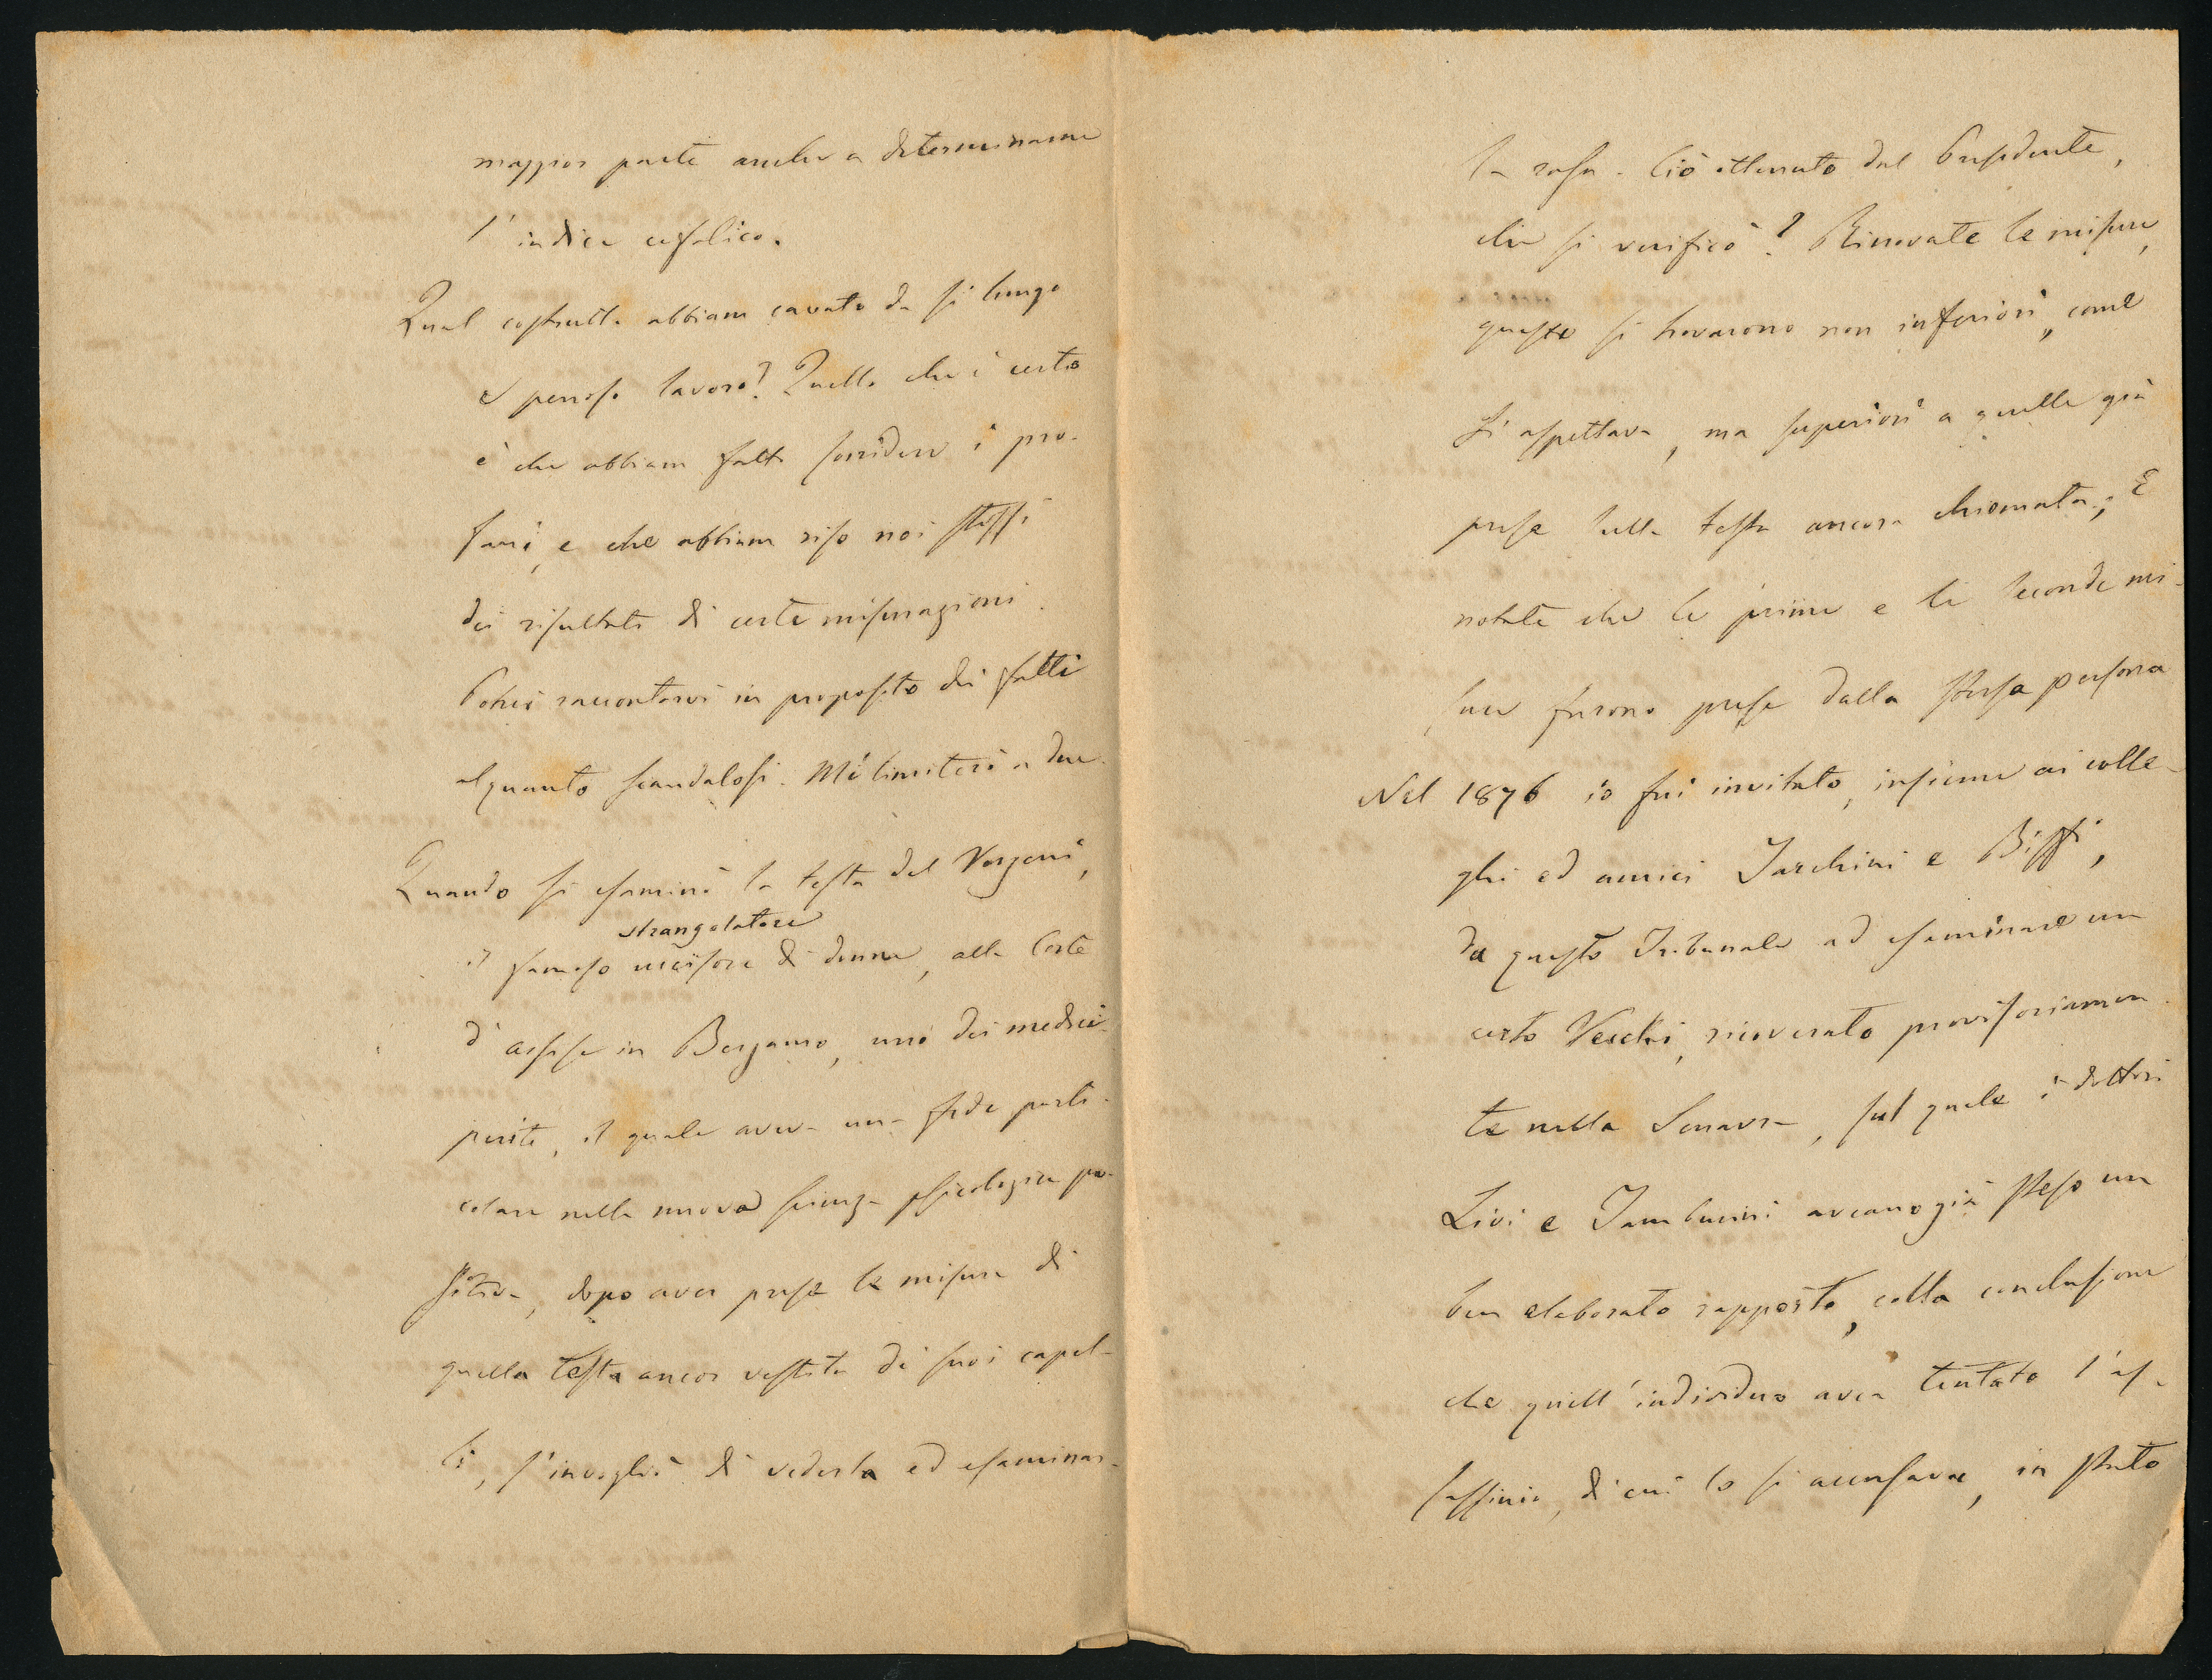 maggior parte anche a determinarne
l'indice cefalico.
Qual costrutto abbiam cavato da sì lungo
e penoso lavoro? Quello che è certo
è che abbiam fatto sorridere i pro-
fani, e che abbiam riso noi stessi
dei risultati di certe misurazioni.
Potrei raccontarvi in proposito dei fatti
alquanto scandalosi. Mi limiterò a due.
Quando si esaminò la testa del Verzeni,
strangolatore
il famoso uccisore di donne, alla Corte
d'assise in Bergamo, uno dei medici
periti, il quale aveva una fede parti-
colare nella nuova scienza psicologica po-
sitiva, dopo aver prese le misure di
quella testa ancor vestita di suoi capel-
li, s'invogliò di vederla ed esaminar-
la rasa. Ciò ottenuto dal Presidente,
che si verificò? Rinnovate le misure,
queste si trovarono non inferiori, come
si aspettava, ma superiori a quelle già
prese sulla testa ancora chiomata; E
notate che le prime e le seconde mi-
sure furono prese dalla stessa persona
Nel 1876 io fui invitato, insieme ai colle-
ghi ed amici Tarchini e Biffi,
da questo Tribunale ad esaminare un
certo Vecchi, ricoverato provisoriamen-
te nella Senavra, sul quale i dottori
Livi e Tamburini aveano già steso un
ben elaborato rapporto, colla conclusione
che quell'individuo avea tentato l'as-
sassinio, di cui lo si accusava, in stato